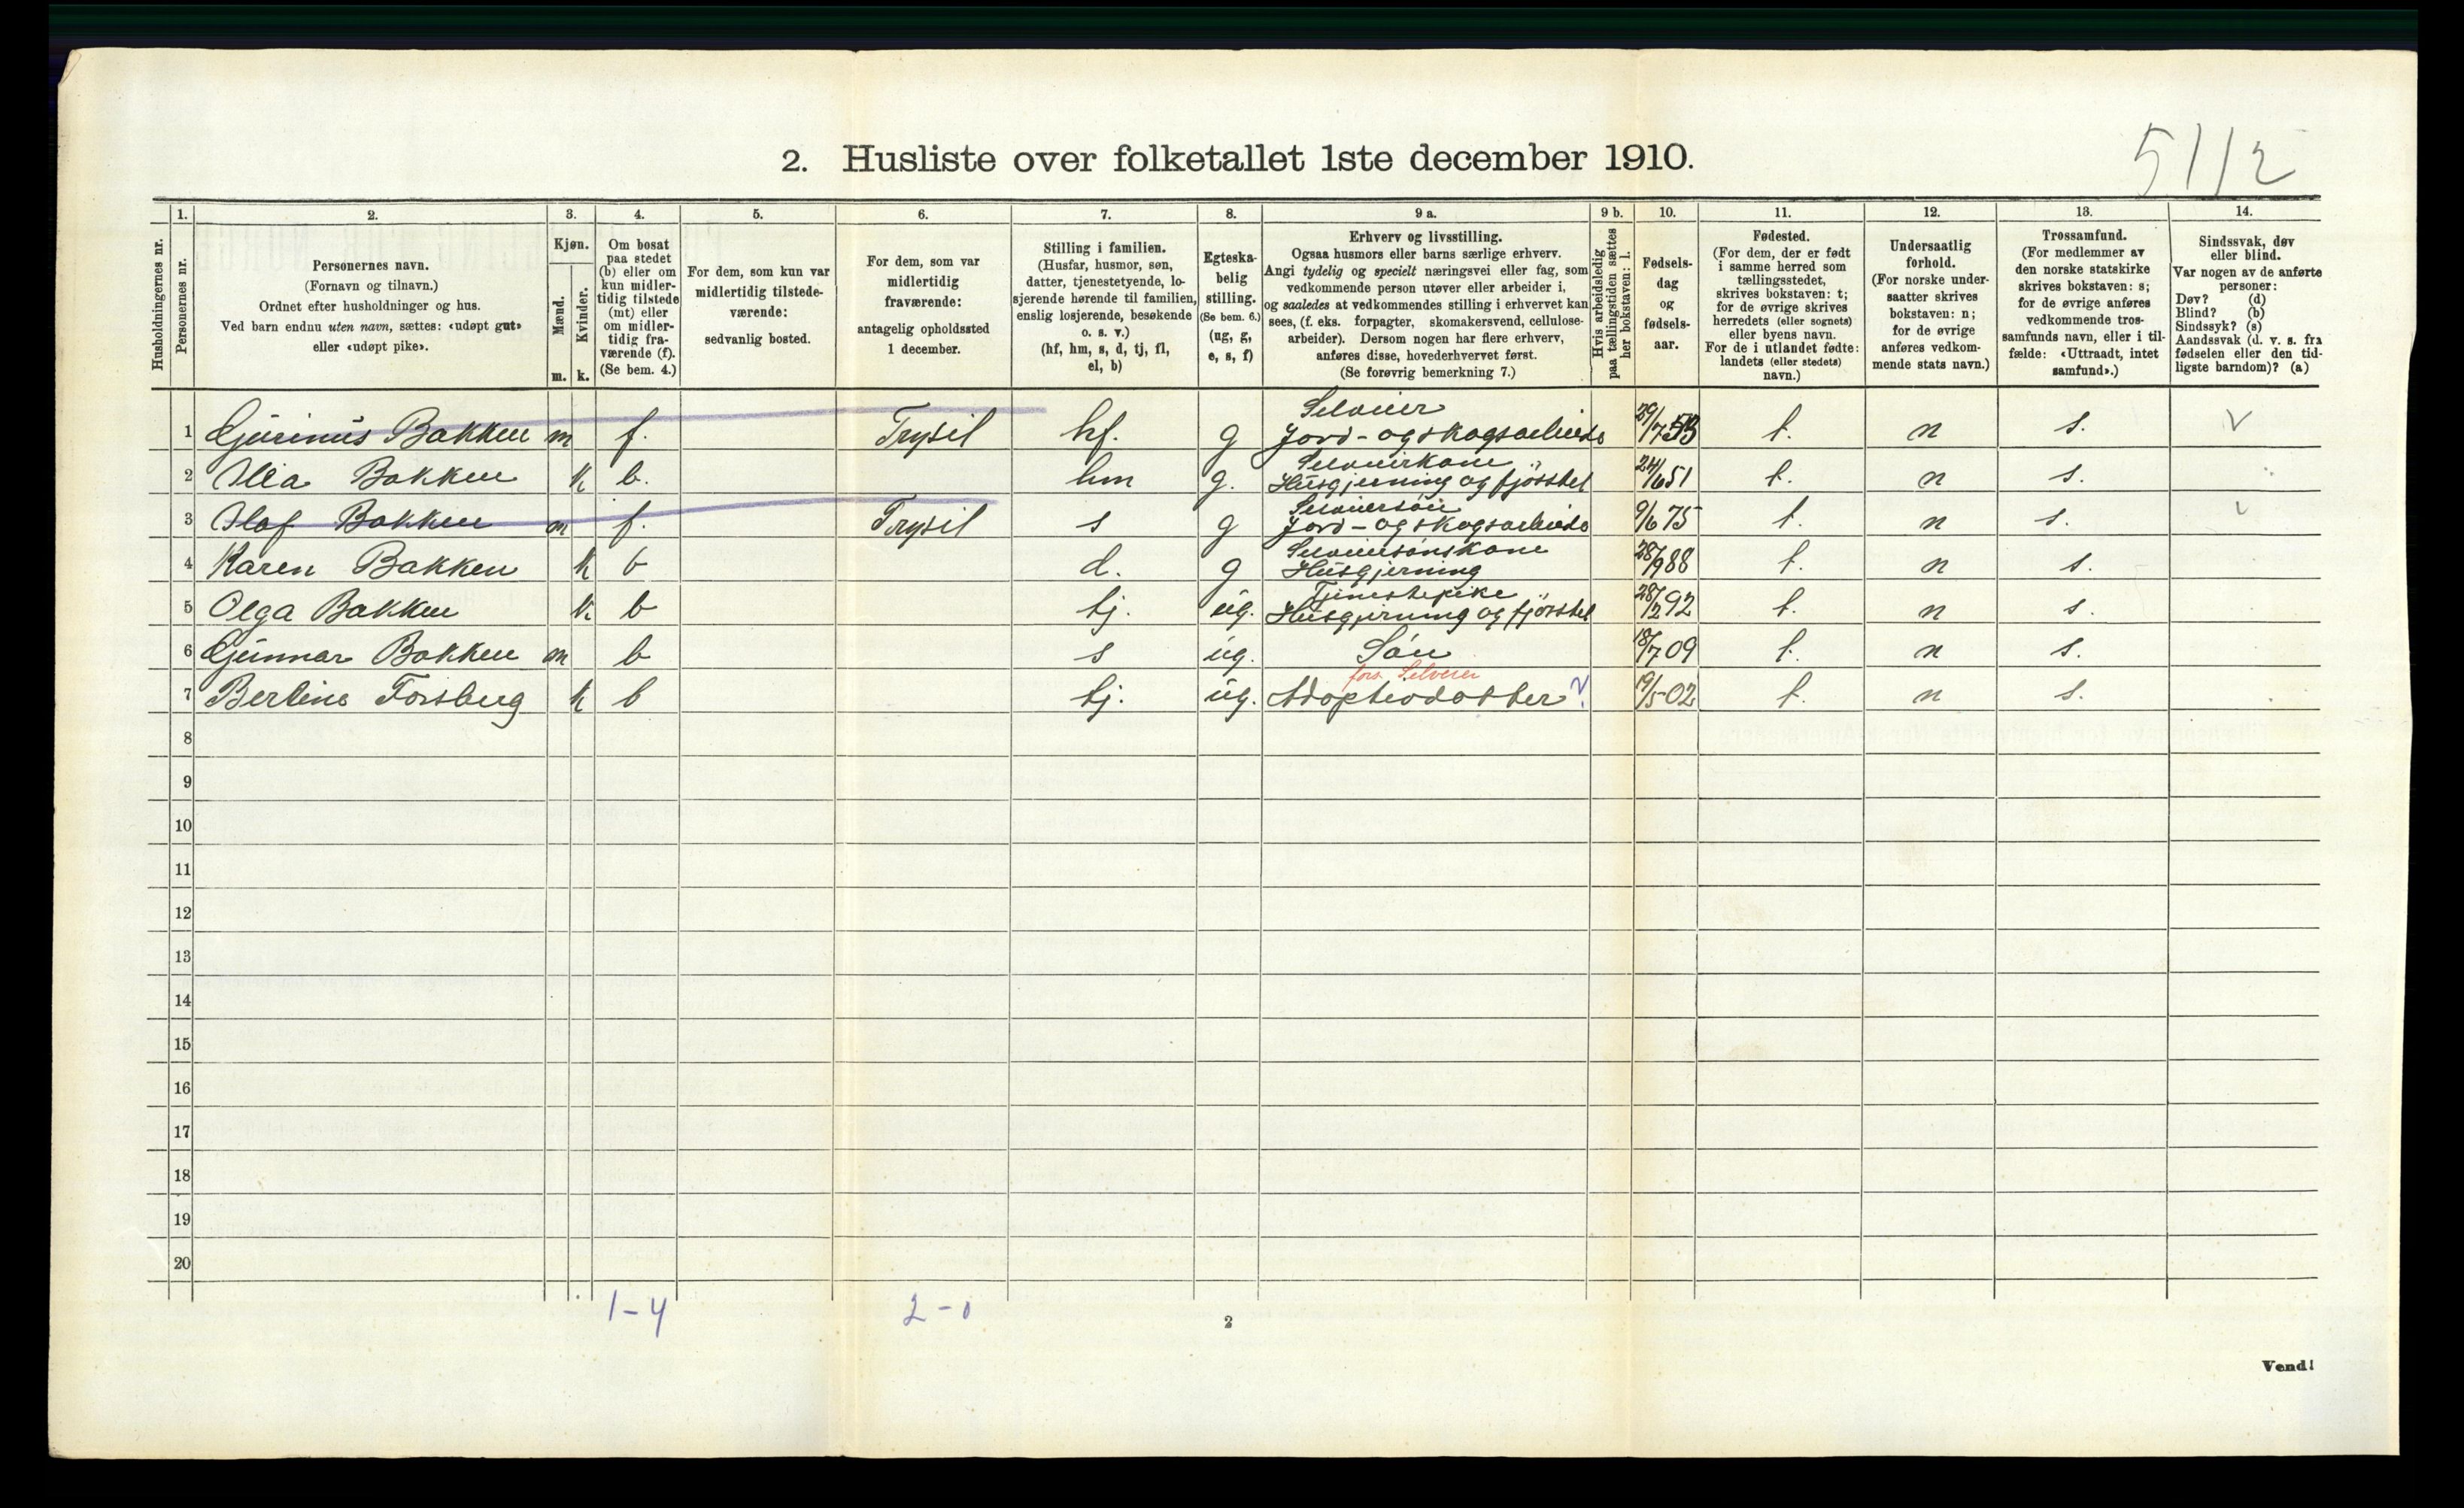 2. Husliste over folketallet 1ste december 1910.
51/2
Husholdningernes nr.
1.
Personernes nr.
2.
Personernes navn.
(Fornavn og tilnavn.)
Ordnet efter husholdninger og hus.
Ved barn endnu uten navn, sættes: «udøpt gut»
eller «udøpt pike».
3.
Kjøn.
Mænd.
Kvinder.
m.
k.
4.
Om bosat
paa stedet
(b) eller om
kun midler-
tidig tilstede
(mt) eller
om midler-
tidig fra-
værende (f).
(Se bem. 4.)
5.
For dem, som kun var
midlertidig tilstede-
værende:
sedvanlig bosted.
6.
For dem, som var
midlertidig
fraværende:
antagelig opholdssted
1 december.
7.
Stilling i familien.
(Husfar, husmor, søn,
datter, tjenestetyende, lo-
sjerende hørende til familien,
enslig losjerende, besøkende
o. s. v.)
(hf, hm, s, d, tj, fl,
el, b)
8.
Egteska-
belig
stilling.
(Se bem. 6.)
(ug, g,
e, s, f)
9 a.
Erhverv og livsstilling.
Ogsaa husmors eller barns særlige erhverv.
Angi tydelig og specielt næringsvei eller fag, som
vedkommende person utøver eller arbeider i,
og saaledes at vedkommendes stilling i erhvervet kan
sees, (f. eks. forpagter, skomakersvend, cellulose-
arbeider). Dersom nogen har flere erhverv,
anføres disse, hovederhvervet først.
(Se forøvrig bemerkning 7.)
9 b.
Hvis arbeidsledig
paa tællingstiden sættes
her bokstaven: l.
10.
Fødsels-
dag
og
fødsels-
aar.
11.
Fødested.
(For dem, der er født
i samme herred som
tællingsstedet,
skrives bokstaven: t;
for de øvrige skrives
herredets (eller sognets)
eller byens navn.
For de i utlandet fødte:
landets (eller stedets)
navn.)
12.
Undersaatlig
forhold.
(For norske under-
saatter skrives
bokstaven: n;
for de øvrige
anføres vedkom-
mende stats navn.)
13.
Trossamfund.
(For medlemmer av
den norske statskirke
skrives bokstaven: s;
for de øvrige anføres
vedkommende tros-
samfunds navn, eller i til-
fælde: «Uttraadt, intet
samfund».)
14.
Sindssvak, døv
eller blind.
Var nogen av de anførte
personer:
Døv? (d)
Blind? (b)
Sindssyk? (s)
Aandssvak (d. v. s. fra
fødselen eller den tid-
ligste barndom)? (a)
Selveier
1 Gurinus Bakken m f. Trysil hf. g Jord- og skogsarbeide 29/7 53 t. n s. v
Selveierkone
2 Bakken k b. hm g. Husgjerning og fjösstel 24/6 51 t. n s.
Selveiersøn
3 Olaf Bakken m f. Trysil s g Jord- og skogsarbeide 9/6 75 t. n s. v
Selveiersønskone
4 Karen Bakken k b d. g Husgjerning 28/9 88 t. n s.
Tjenestepike
5 Olga Bakken k b tj. ug. Husgjerning og fjösstel 28/2 92 t. n s.
6 Gunnar Bakken m b s ug. Søn 18/7 09 t. n s.
fors. Selveier
7 Bertine Forsberg k b tj. ug. Adoptivdatter 19/5 02 t. n s.
8
9
10
11
12
13
14
15
16
17
18
19
20
1-4
2-0
2
Vend!